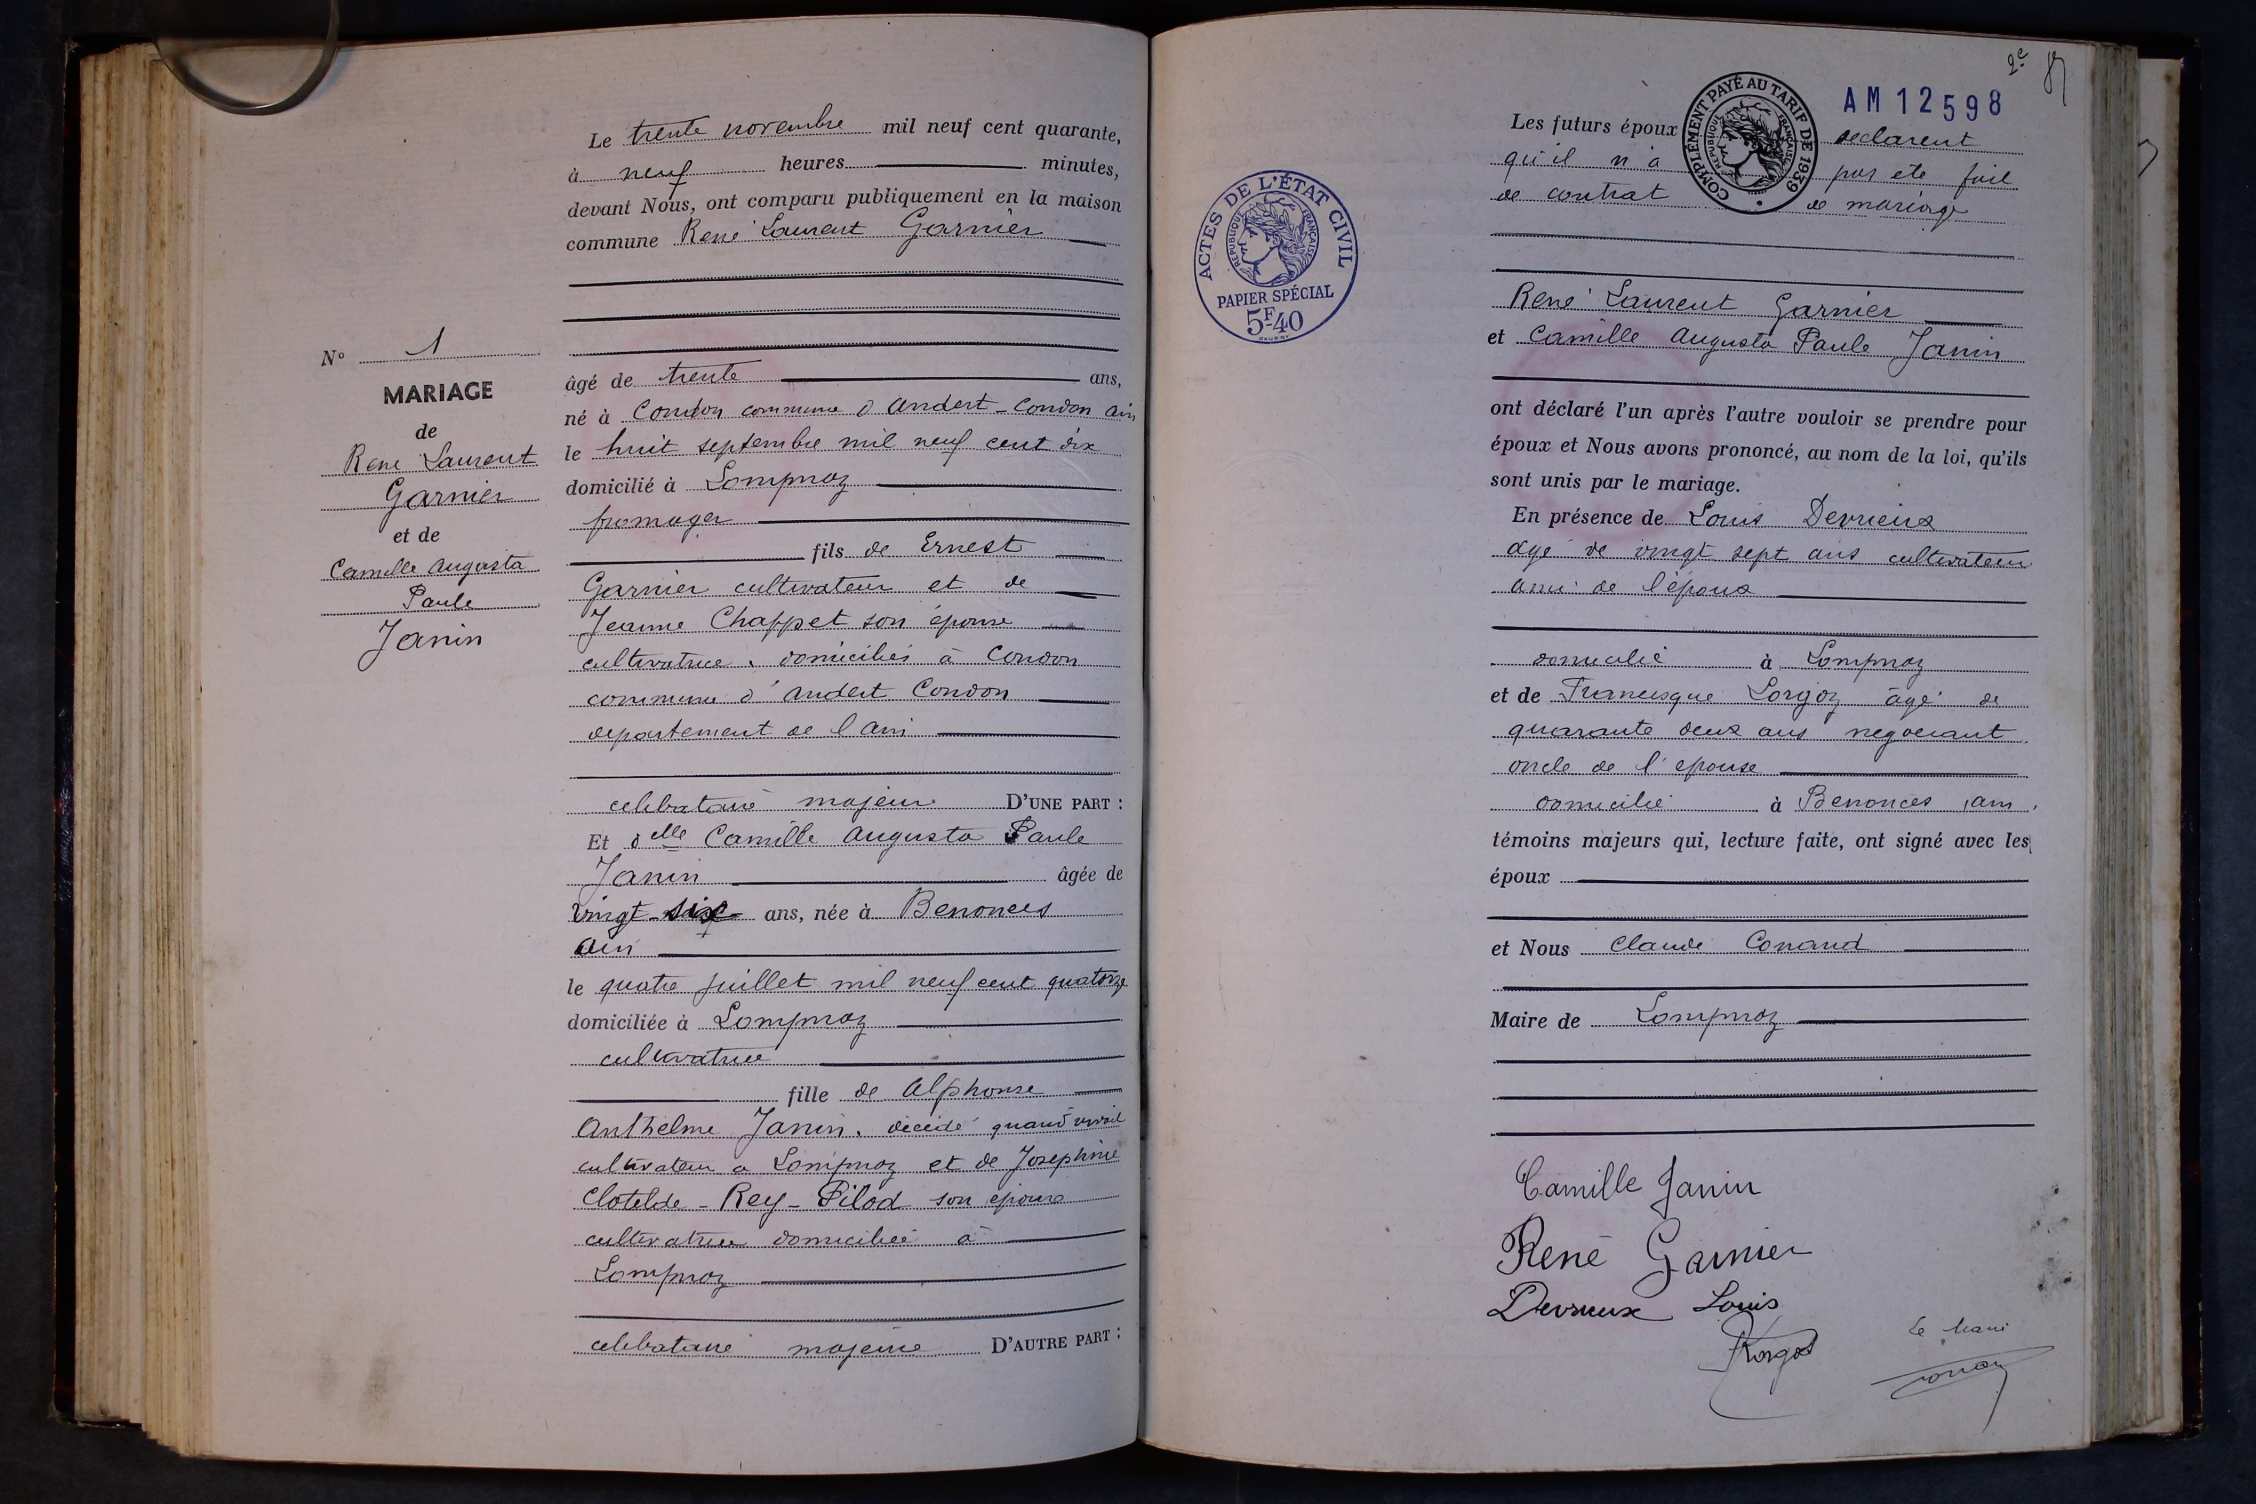 Le trente novembre mil neuf cent quarante,
à neuf heures minutes,
devant Nous, ont comparu publiquement en la maison
commune René Laurent Garnier
N° 1
MARIAGE
de
René Laurent
Garnier
et de
Camille Augusta
Paule
Janin
âgé de trente ans,
né à Condon commune d'Andert-Condon Ain
le huit septembre mil neuf cent dix
domicilié à Lompnaz
fromager
fils de Ernest
Garnier cultivateur et de
Jeanne Chappet son épouse
cultivatrice, domiciliés à Condon
commune d'Andert Condon
departement de l'Ain
celibataire majeur D'UNE PART :
Et delle Camille Augusta Paule
Janin âgée de
vingt-six ans, née à Benonces
Ain
le quatre juillet mil neuf cent quatorze
domiciliée à Lompnaz
cultivatrice
fille de Alphonse
Anthelme Janin, décédé quand vivait
cultivateur a Lompnaz et de Josephine
Clotilde-Rey-Pilod son epouse
cultivatrice domiciliée à
Lompnaz
celibataire majeure D'AUTRE PART :
2e
AM 12598
COMPLÉMENT PAYÉ AU TARIF DE 1939
RÉPUBLIQUE FRANÇAISE
ACTES DE L'ÉTAT CIVIL
RÉPUBLIQUE FRANÇAISE
PAPIER SPÉCIAL
5F40
Les futurs époux declarent
qu'il n'a pas ete fait
de contrat de mariage
René Laurent Garnier
et Camille Augusta Paule Janin
ont déclaré l'un après l'autre vouloir se prendre pour
époux et Nous avons prononcé, au nom de la loi, qu'ils
sont unis par le mariage.
En présence de Louis Devrieux
age de vingt sept ans cultivateur
ami de l'époux
domicilié à Lompnaz
et de Francisque Lorgoz âgé de
quarante deux ans negociant
oncle de l'epouse
domicilié à Benonces, ain,
témoins majeurs qui, lecture faite, ont signé avec les
époux
et Nous Claude Conand
Maire de Lompnaz
Camille Janin
René Garnier
Devrieux Louis
Le Maire